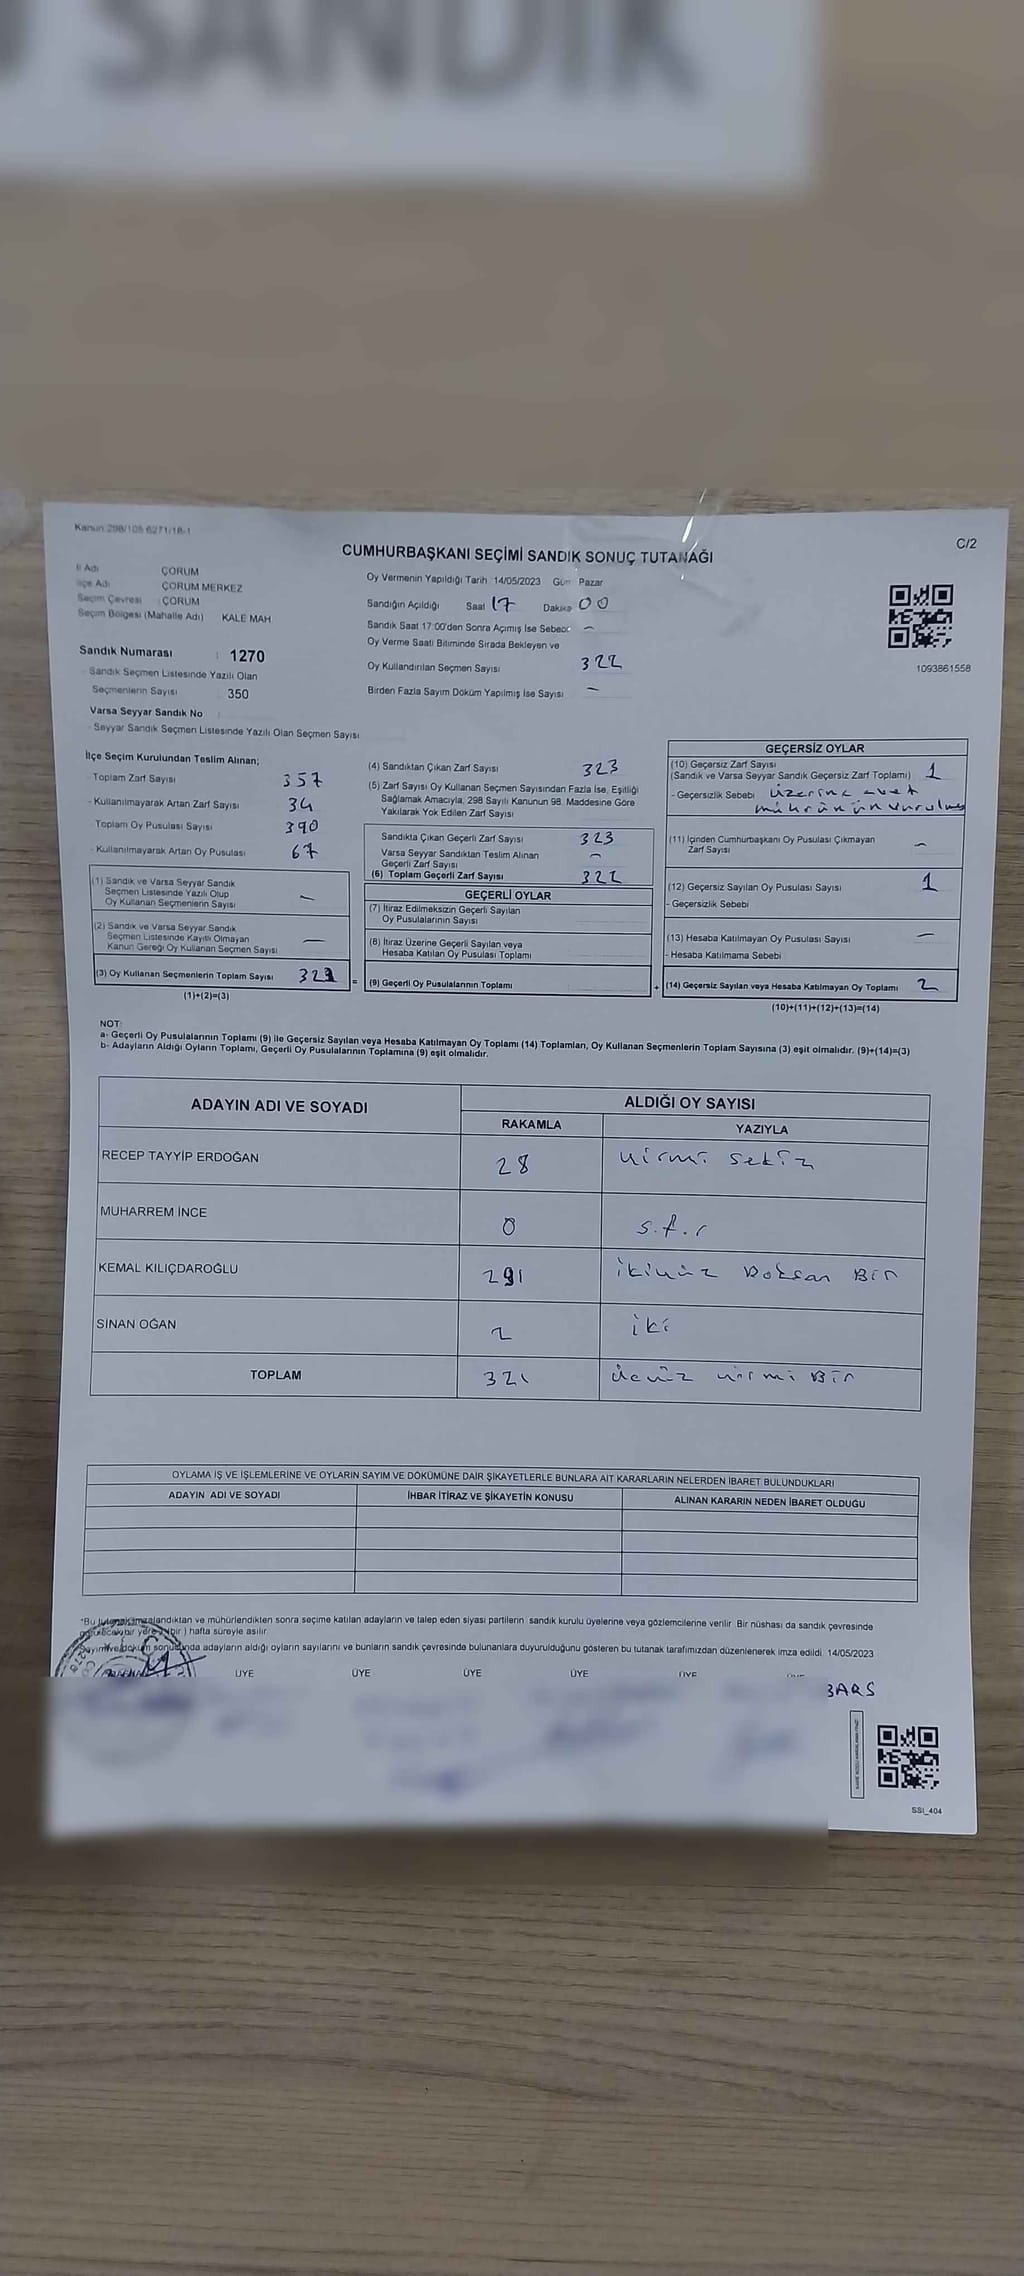 SANDIK
Kanun 298/105 6271/18-1
C/2
CUMHURBAŞKANI SEÇİMİ SANDIK SONUÇ TUTANAĞI
İl Adı ÇORUM
İlçe Adı ÇORUM MERKEZ
Seçim Çevresi : ÇORUM
Seçim Bölgesi (Mahalle Adı) KALE MAH
Sandık Numarası : 1270
- Sandık Seçmen Listesinde Yazılı Olan
Seçmenlerin Sayısı 350
Varsa Seyyar Sandık No :
- Seyyar Sandık Seçmen Listesinde Yazılı Olan Seçmen Sayısı
Oy Vermenin Yapıldığı Tarih 14/05/2023 Gün Pazar
Sandığın Açıldığı Saat 17 Dakika 00
Sandık Saat 17:00'den Sonra Açımış İse Sebebi –
Oy Verme Saati Bitiminde Sırada Bekleyen ve
Oy Kullandırılan Seçmen Sayısı 322
Birden Fazla Sayım Döküm Yapılmış İse Sayısı –
1093861558
İlçe Seçim Kurulundan Teslim Alınan;
- Toplam Zarf Sayısı 357
- Kullanılmayarak Artan Zarf Sayısı 34
- Toplam Oy Pusulası Sayısı 390
- Kullanılmayarak Artan Oy Pusulası 67
(1) Sandık ve Varsa Seyyar Sandık
Seçmen Listesinde Yazılı Olup
Oy Kullanan Seçmenlerin Sayısı –
(2) Sandık ve Varsa Seyyar Sandık
Seçmen Listesinde Kayıtlı Olmayan
Kanun Gereği Oy Kullanan Seçmen Sayısı –
(3) Oy Kullanan Seçmenlerin Toplam Sayısı
(1)+(2)=(3)
(4) Sandıktan Çıkan Zarf Sayısı 323
(5) Zarf Sayısı Oy Kullanan Seçmen Sayısından Fazla İse, Eşitliği
Sağlamak Amacıyla, 298 Sayılı Kanunun 98. Maddesine Göre
Yakılarak Yok Edilen Zarf Sayısı
Sandıkta Çıkan Geçerli Zarf Sayısı 323
Varsa Seyyar Sandıktan Teslim Alınan
Geçerli Zarf Sayısı –
(6) Toplam Geçerli Zarf Sayısı 322
GEÇERLİ OYLAR
(7) İtiraz Edilmeksizin Geçerli Sayılan
Oy Pusulalarının Sayısı
(8) İtiraz Üzerine Geçerli Sayılan veya
Hesaba Katılan Oy Pusulası Toplamı
= (9) Geçerli Oy Pusulalarının Toplamı
GEÇERSİZ OYLAR
(10) Geçersiz Zarf Sayısı
(Sandık ve Varsa Seyyar Sandık Geçersiz Zarf Toplamı) 1
- Geçersizlik Sebebi üzerine evet
mührünün vurulması
(11) İçinden Cumhurbaşkanı Oy Pusulası Çıkmayan
Zarf Sayısı –
(12) Geçersiz Sayılan Oy Pusulası Sayısı 1
- Geçersizlik Sebebi
(13) Hesaba Katılmayan Oy Pusulası Sayısı –
- Hesaba Katılmama Sebebi
+ (14) Geçersiz Sayılan veya Hesaba Katılmayan Oy Toplamı 2
(10)+(11)+(12)+(13)=(14)
NOT:
a- Geçerli Oy Pusulalarının Toplamı (9) ile Geçersiz Sayılan veya Hesaba Katılmayan Oy Toplamı (14) Toplamları, Oy Kullanan Seçmenlerin Toplam Sayısına (3) eşit olmalıdır. (9)+(14)=(3)
b- Adayların Aldığı Oyların Toplamı, Geçerli Oy Pusulalarının Toplamına (9) eşit olmalıdır.
ADAYIN ADI VE SOYADI ALDIĞI OY SAYISI
RAKAMLA YAZIYLA
RECEP TAYYİP ERDOĞAN 28 yirmi sekiz
MUHARREM İNCE 0 sıfır
KEMAL KILIÇDAROĞLU 291 ikiyüz Doksan Bir
SİNAN OĞAN 2 iki
TOPLAM 321 üçyüz yirmi Bir
OYLAMA İŞ VE İŞLEMLERİNE VE OYLARIN SAYIM VE DÖKÜMÜNE DAİR ŞİKAYETLERLE BUNLARA AİT KARARLARIN NELERDEN İBARET BULUNDUKLARI
ADAYIN ADI VE SOYADI İHBAR İTİRAZ VE ŞİKAYETİN KONUSU ALINAN KARARIN NEDEN İBARET OLDUĞU
*Bu tutanak imzalandıktan ve mühürlendikten sonra seçime katılan adayların ve talep eden siyasi partilerin sandık kurulu üyelerine veya gözlemcilerine verilir. Bir nüshası da sandık çevresinde
görülecek bir yere 1(bir) hafta süreyle asılır.
Sayım ve döküm sonucunda adayların aldığı oyların sayılarını ve bunların sandık çevresinde bulunanlara duyurulduğunu gösteren bu tutanak tarafımızdan düzenlenerek imza edildi. 14/05/2023
ÜYE ÜYE ÜYE ÜYE ÜYE ÜYE
BARS
SSI_404